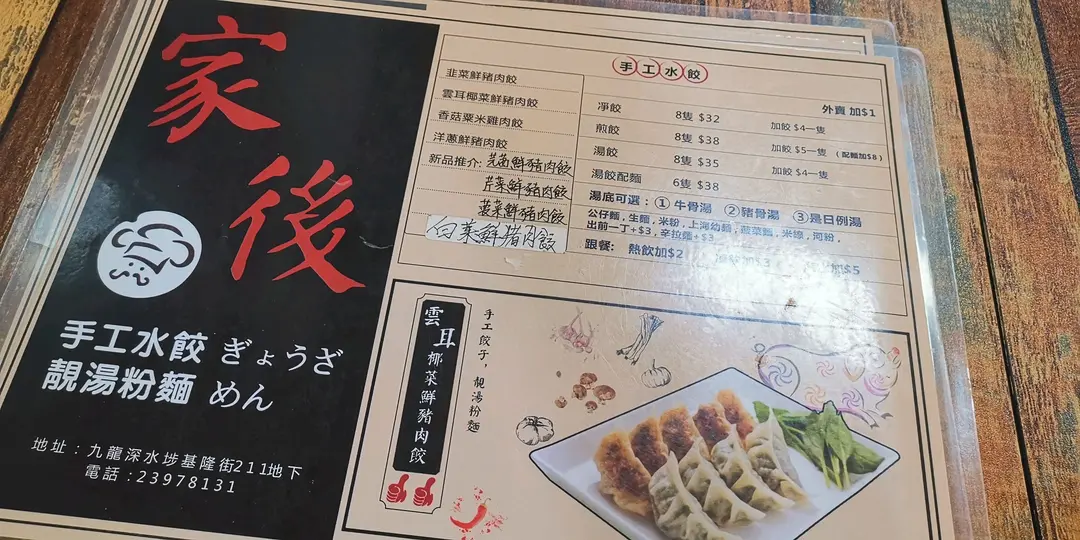 家後
手工水餃 ぎょうざ
靚湯粉麵 めん
地址：九龍深水埗基隆街211地下
電話：23978131
手工水餃
韭菜鮮豬肉餃
雲耳椰菜鮮豬肉餃
香菇粟米雞肉餃
洋蔥鮮豬肉餃
新品推介：芫茜鮮豬肉餃
芹菜鮮豬肉餃
菠菜鮮豬肉餃
白菜鮮豬肉餃
外賣 加$1
淨餃 8隻 $32 加餃 $4一隻
煎餃 8隻 $38 加餃 $5一隻 (配麵加$8)
湯餃 8隻 $35 加餃 $4一隻
湯餃配麵 6隻 $38
湯底可選：① 牛骨湯 ②豬骨湯 ③是日例湯
公仔麵，生麵，米粉，上海幼麵，菠菜麵，米線，河粉，
出前一丁+$3，辛拉麵+$3
跟餐： 熱飲加$2 加$3 加$5
雲耳椰菜鮮豬肉餃
手工餃子，靚湯粉麵